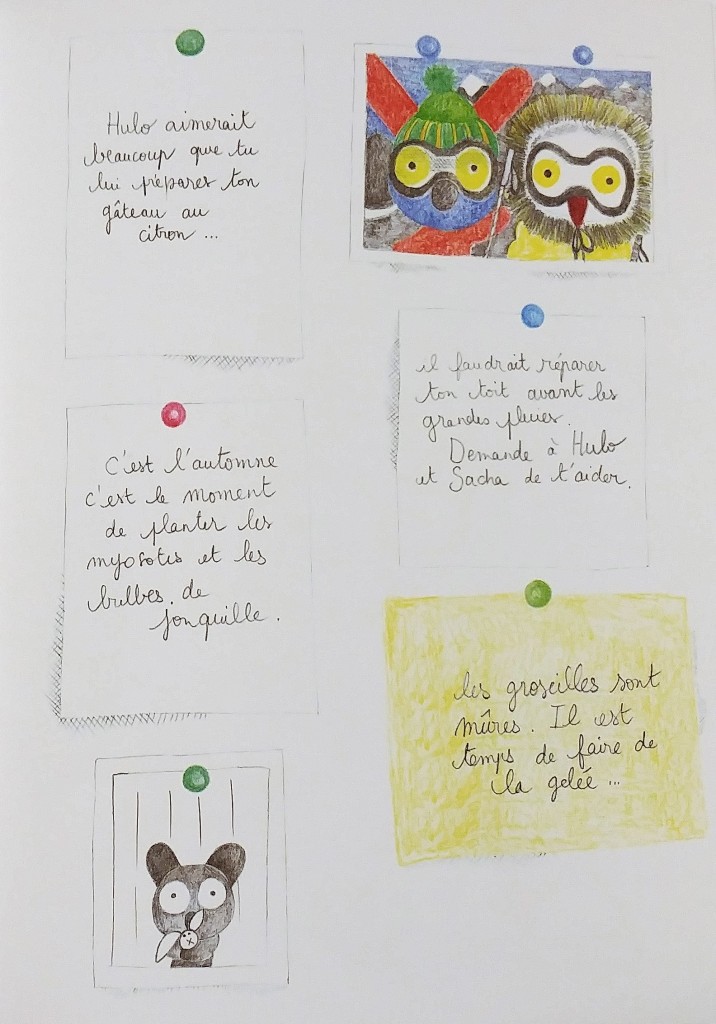 Hulo aimerait
beaucoup que tu
lui prépares ton
gâteau au
citron ...
il faudrait réparer
ton toit avant les
grandes pluies.
Demande à Hulo
et Sacha de t'aider.
C'est l'automne
c'est le moment
de planter les
myosotis et les
bulbes de
jonquille.
les groseilles sont
mûres. Il est
temps de faire de
la gelée ...